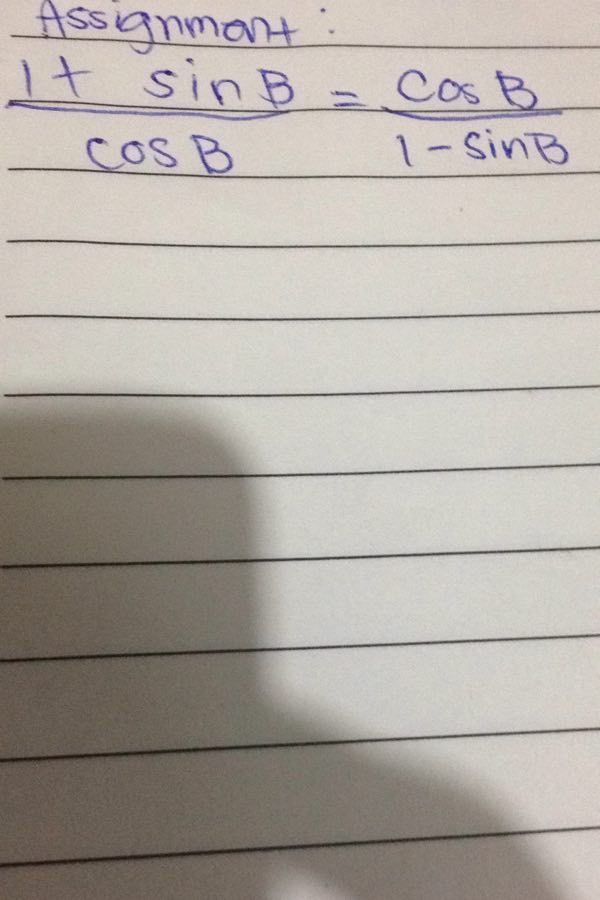 Assignment:
1 + sin B = cos B
cos B 1 - sin B